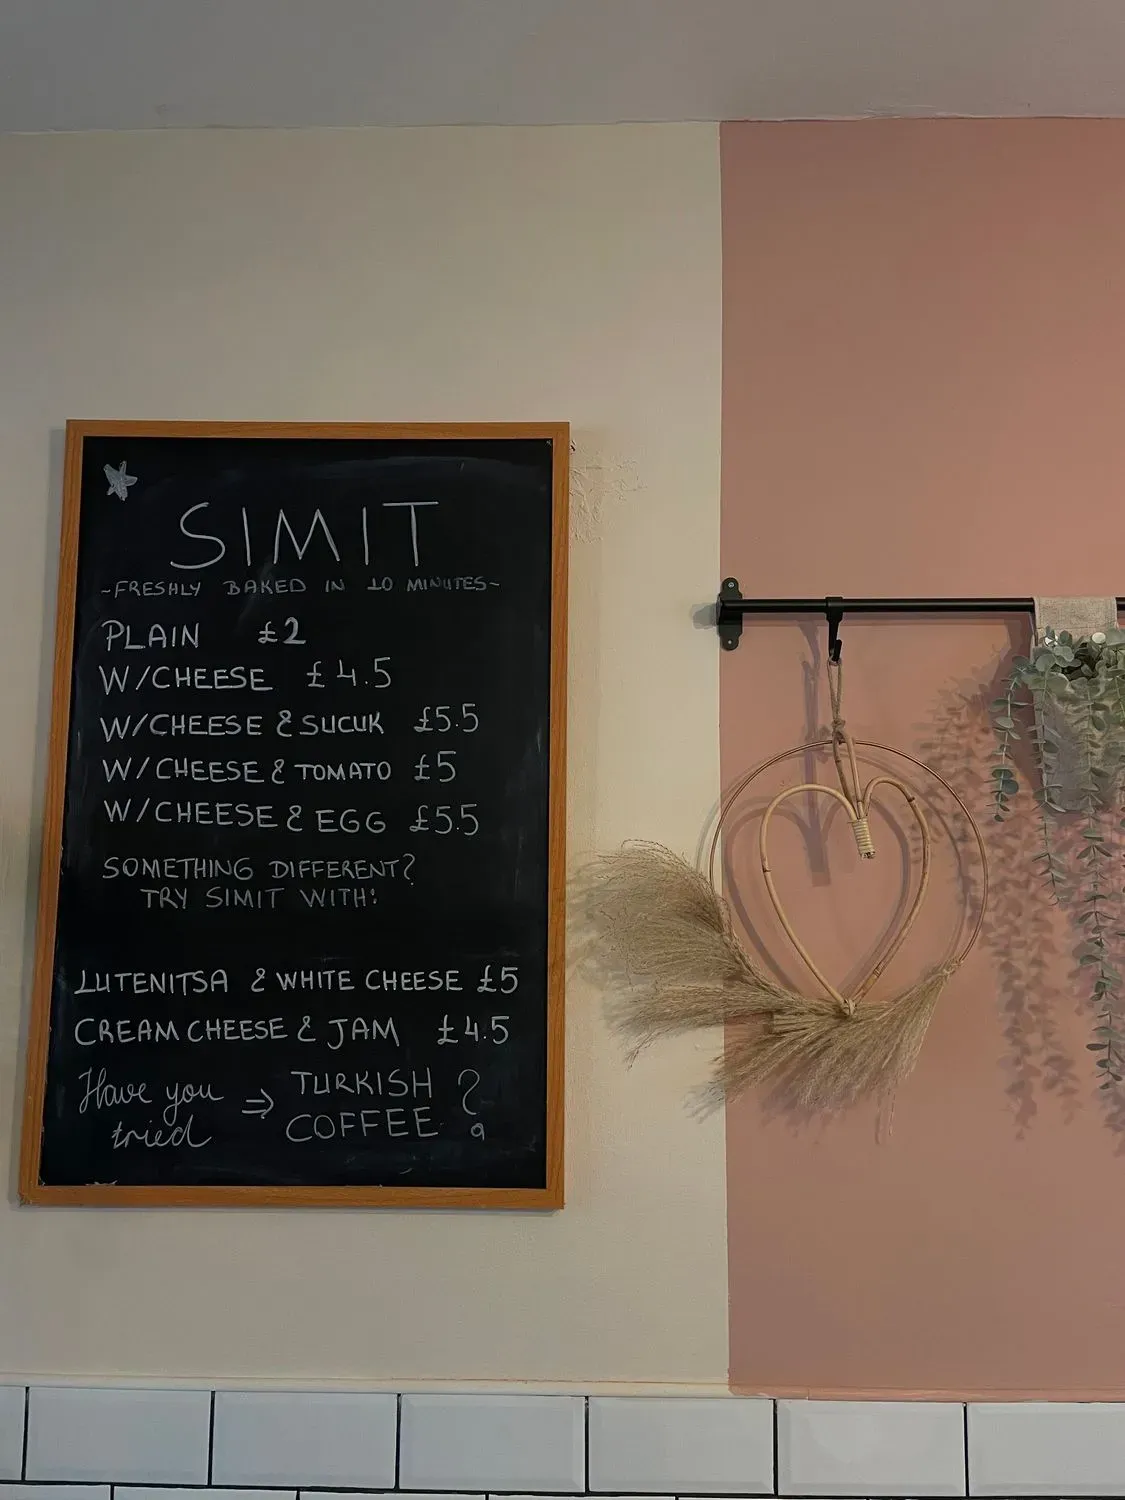 SIMIT
~FRESHLY BAKED IN 10 MINUTES~
PLAIN £2
W/CHEESE £4.5
W/CHEESE & SUCUK £5.5
W/CHEESE & TOMATO £5
W/CHEESE & EGG £5.5
SOMETHING DIFFERENT?
TRY SIMIT WITH:
LUTENITSA & WHITE CHEESE £5
CREAM CHEESE & JAM £4.5
Have you tried => TURKISH COFFEE ?